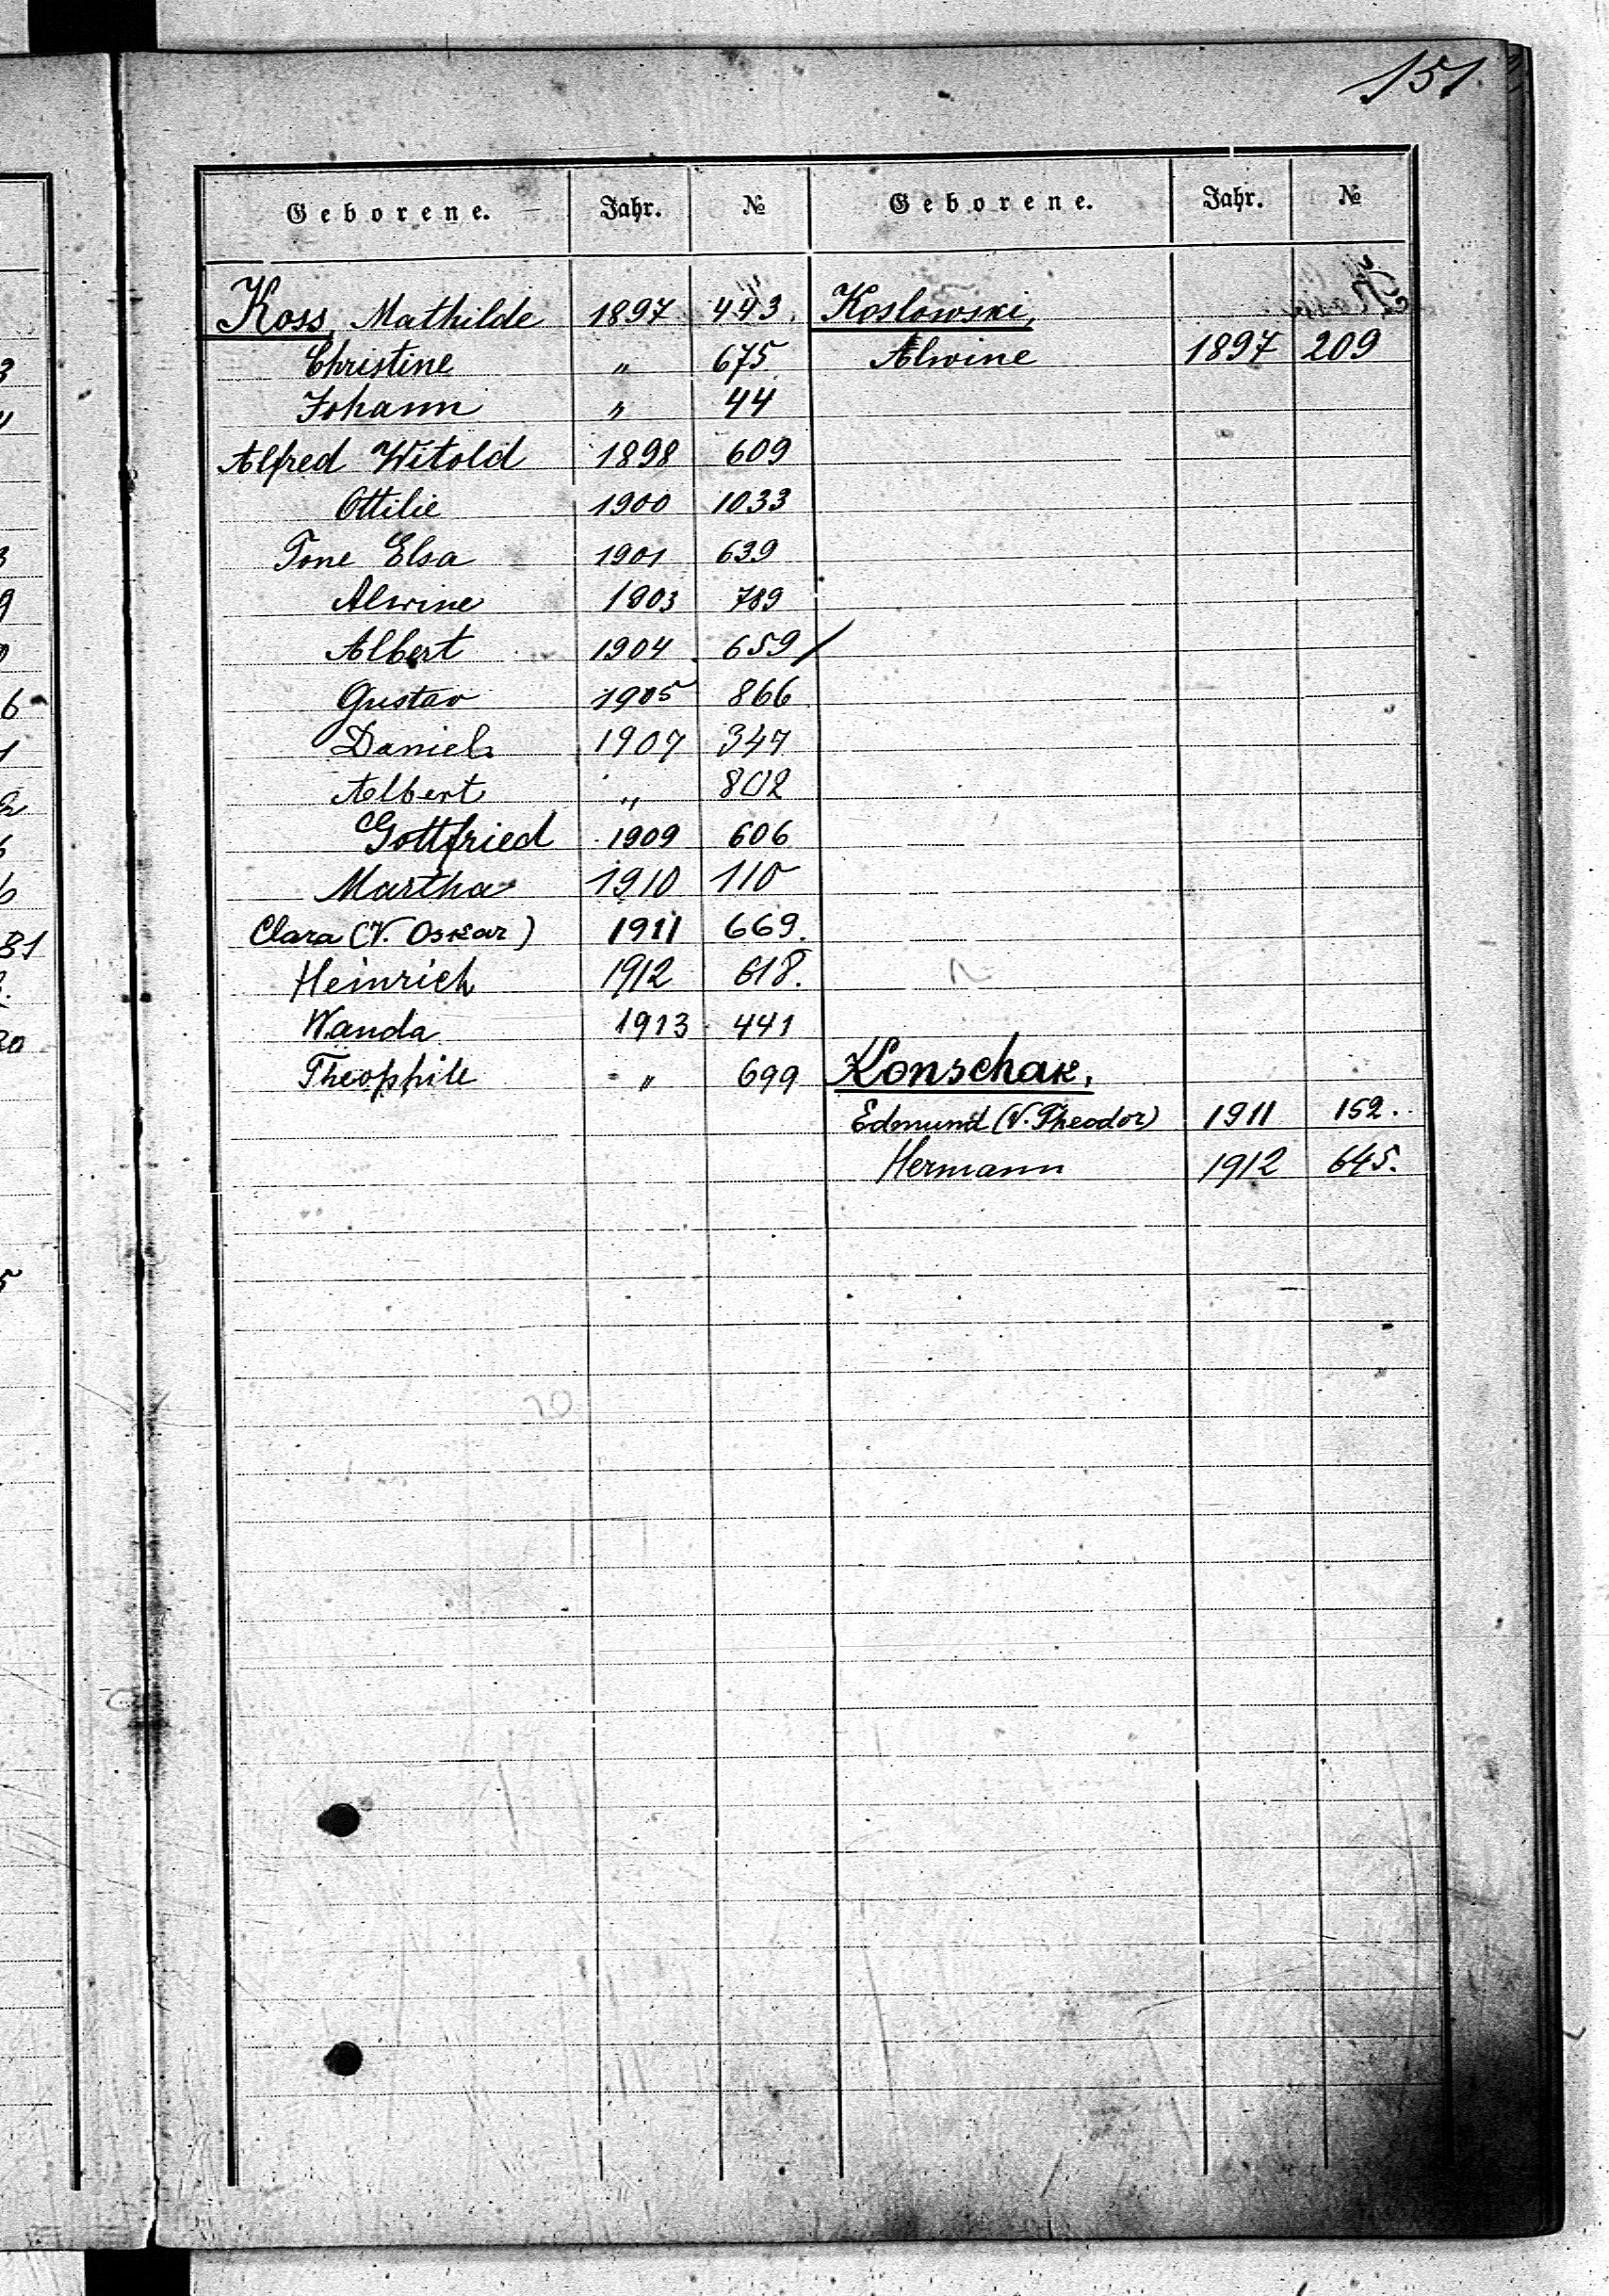 151.
Geborene. Jahr. № Geborene. Jahr. №
Koss, Mathilde 1897 443.
Christine " 675
Johann " 44
Alfred Witold 1898 609
Ottilie 1900 1033
Tone Elsa 1901 639
Alwine 1903 789
Albert 1904 659
Gustav 1905 866
Daniel 1907 347
Albert " 802
Gottfried 1909 606
Martha 1910 110
Clara (V. Oskar) 1911 669.
Heinrich 1912 618.
Wanda 1913 441
Theophile " 699
Koslowski,
Alwine 1897 209
Konschak,
Edmund (V. Theodor) 1911 152.
Hermann 1912 645.